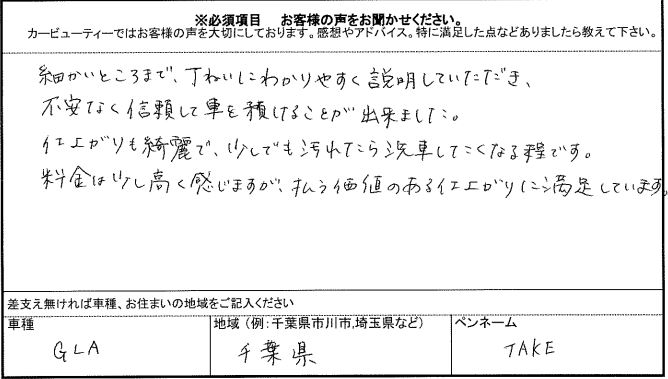 ※必須項目　お客様の声をお聞かせください。
カービューティーではお客様の声を大切にしております。感想やアドバイス。特に満足した点などありましたら教えて下さい。
細かいところまで、丁ねいにわかりやすく説明していただき、
不安なく信頼して車を積けることが出来ました。
仕上がりも綺麗で、少しでも汚れたら洗車したくなる程です。
料金は少し高く感じますが、払う価値のある仕上がりに満足しています。
差支え無ければ車種、お住まいの地域をご記入ください
車種　地域（例：千葉県市川市,埼玉県など）　ペンネーム
GLA　千葉県　TAKE